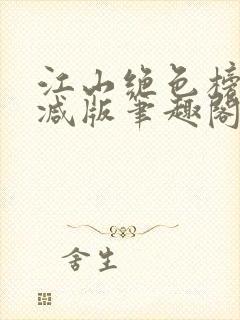 江山绝色榜
减版笔趣阁
舍生